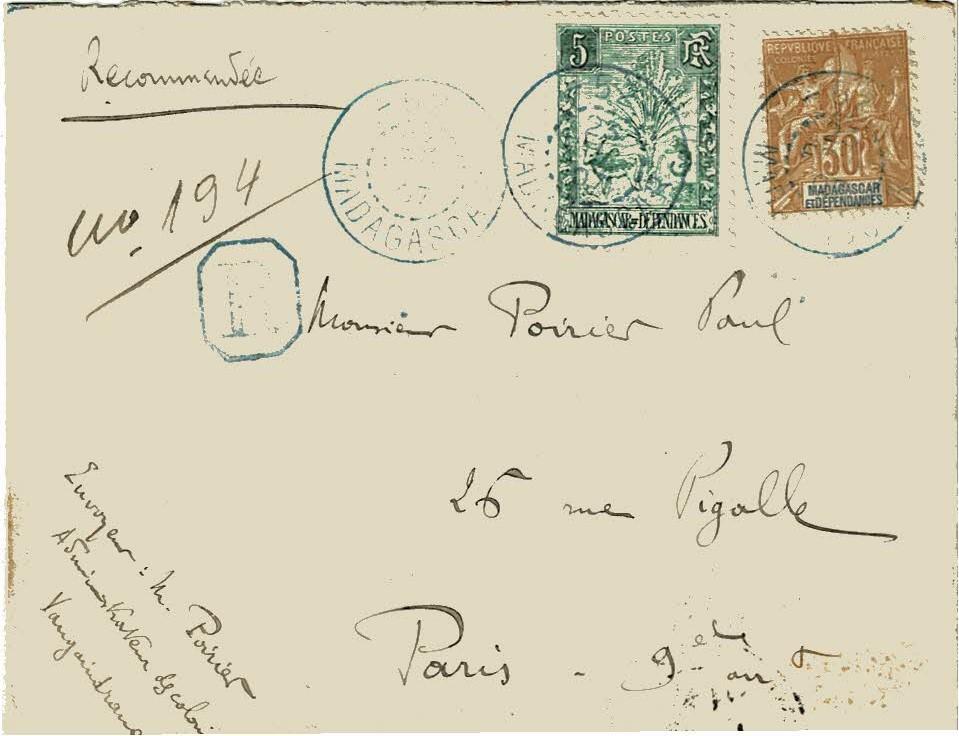 Recommandée
no. 194
MADAGASCAR
5 POSTES RF
MADAGASCAR=DÉPENDANCES
REPVBLIQVE FRANÇAISE
COLONIES
30
MADAGASCAR
ET DÉPENDANCES
R
Monsieur Poirier Paul
26 rue Pigalle
Paris - 9e arrt
Envoyeur : M. Poirier
Administrateur des coloni
Vangaindrano